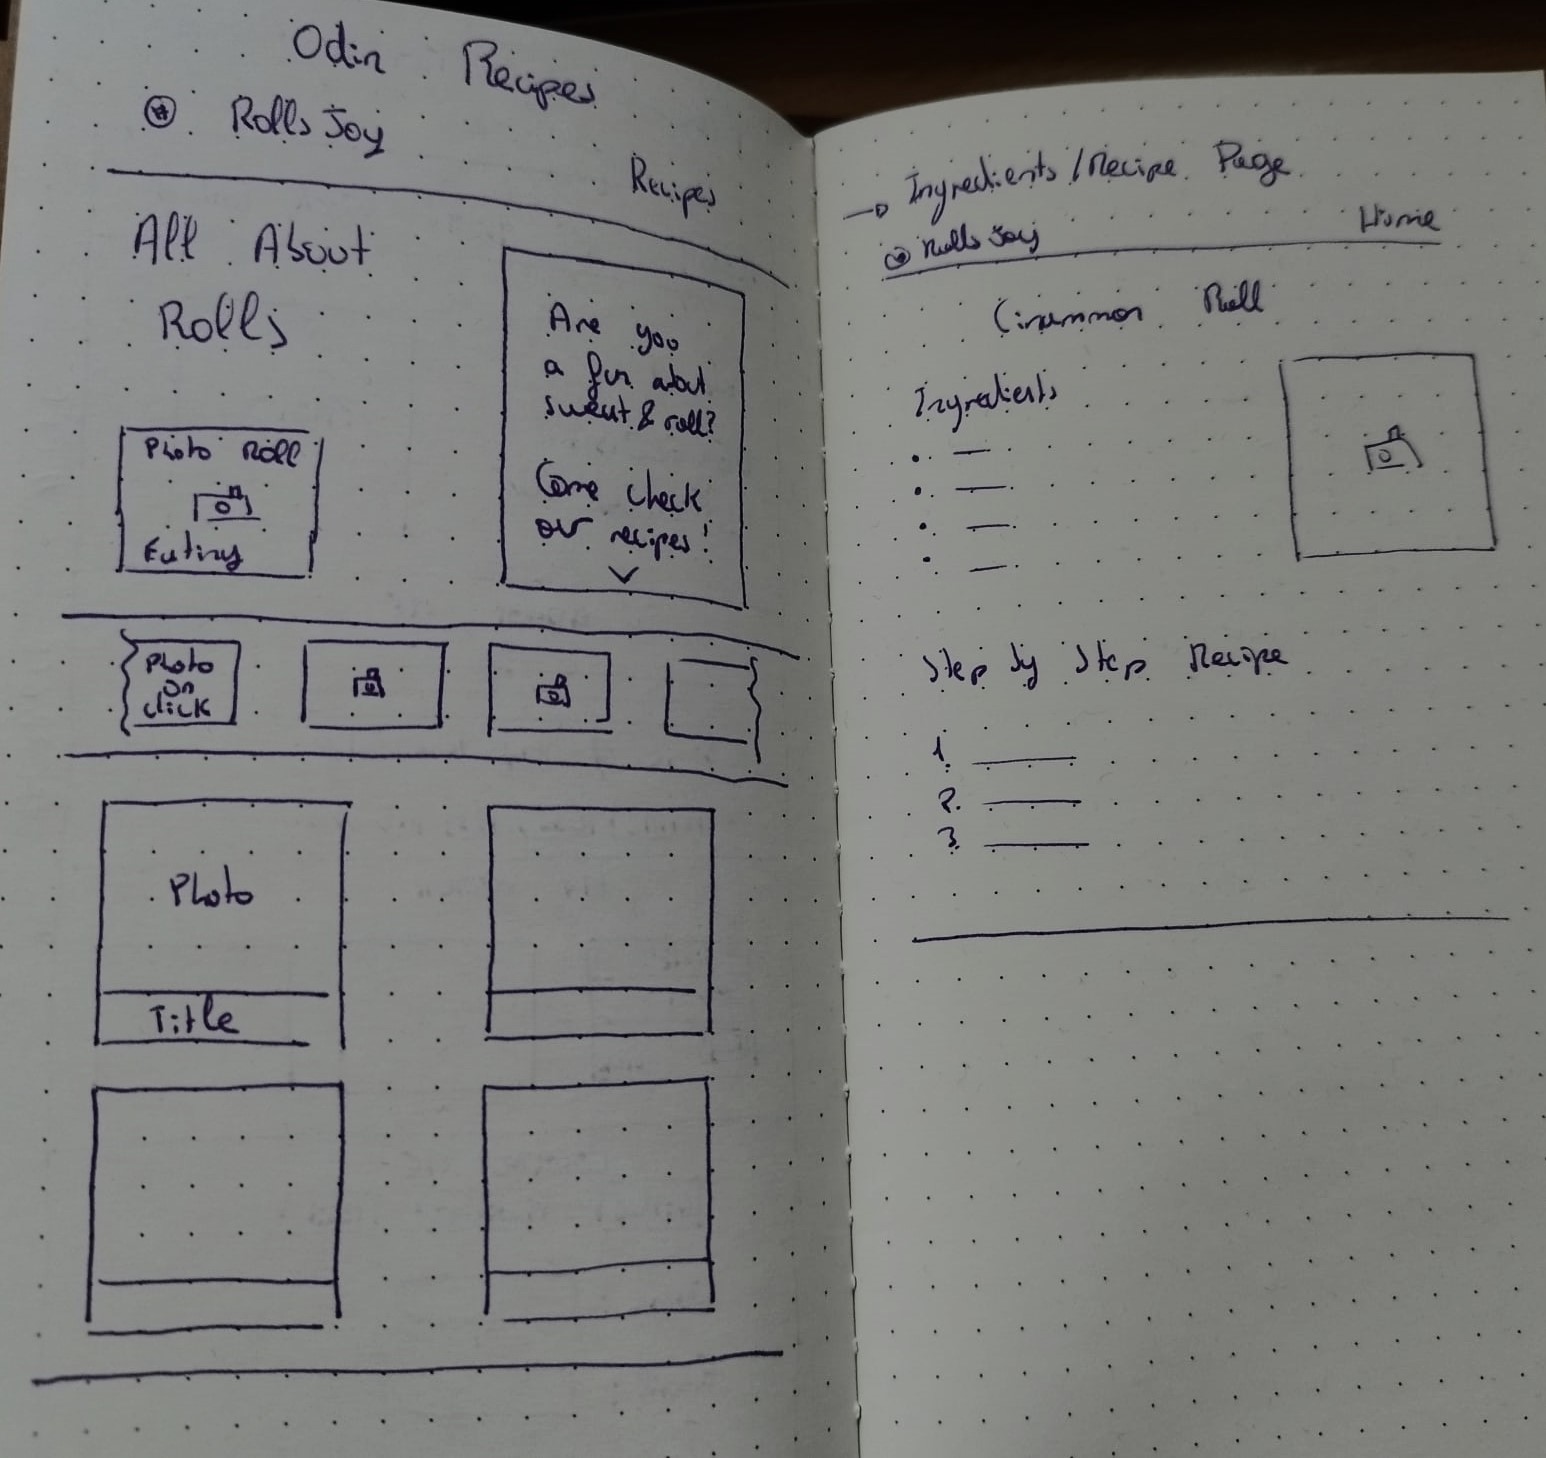 Odin Recipes
Rolls Joy
Recipes
All About
Rolls
Photo Roll
Eating
Are you
a fun about
sweet & roll?
Come check
our recipes!
Photo
on
click
Photo
Title
→ Ingredients / Recipe Page
Rolls Joy
Home
Cinammon Roll
Ingredients
Step by Step Recipe
1.
2.
3.